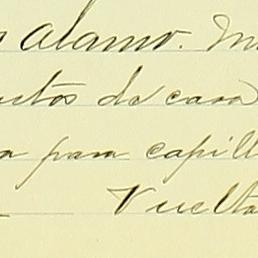 Alamo. M
tos de casa
a para capill
Vuelta